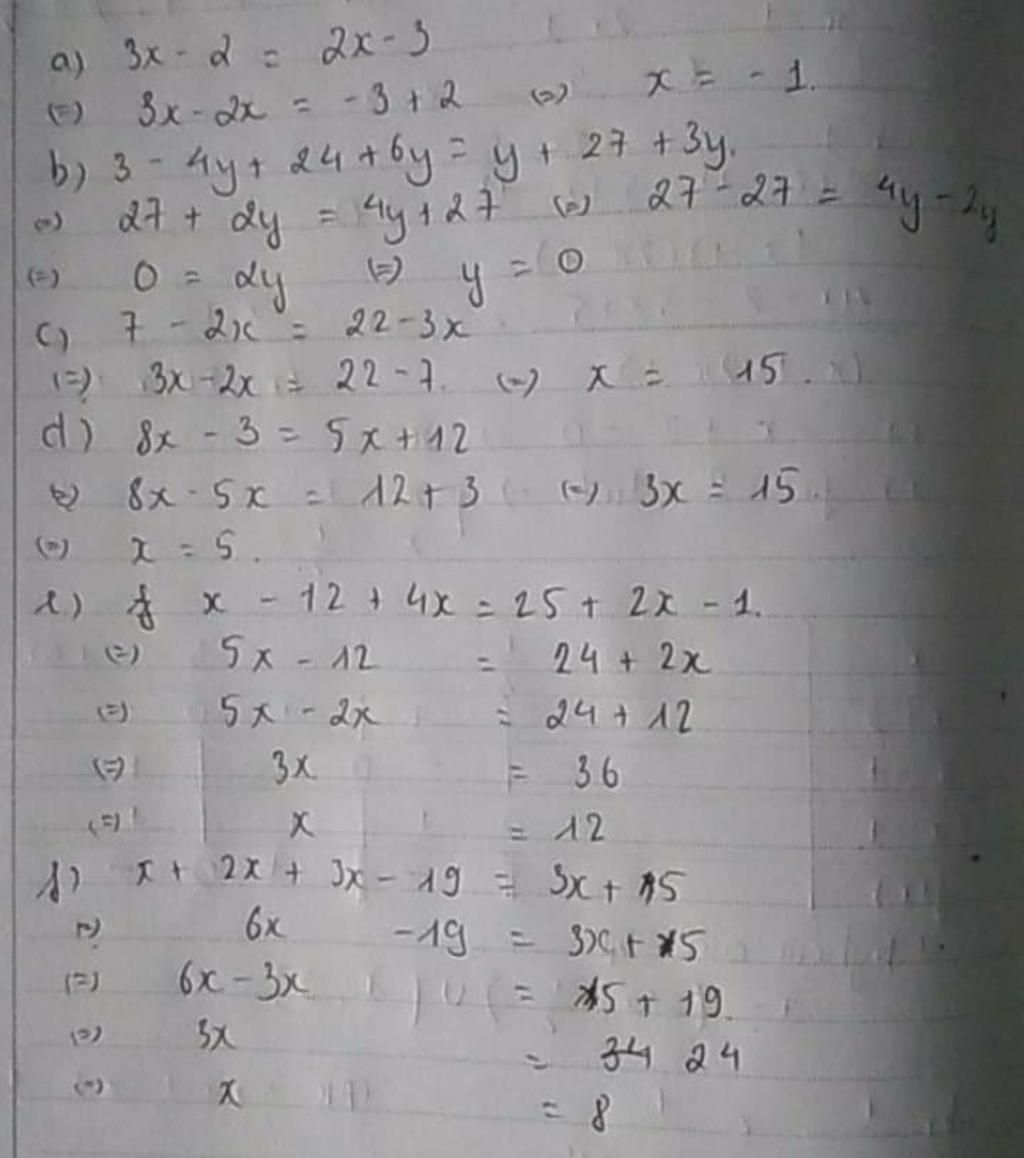 a) 3x - 2 = 2x - 3
(=) 3x - 2x = -3 + 2 (=) x = -1.
b) 3 - 4y + 24 + 6y = y + 27 + 3y.
(=) 27 + 2y = 4y + 27 (=) 27 - 27 = 4y - 2y
(=) 0 = 2y (=) y = 0
c) 7 - 2x = 22 - 3x
(=) 3x - 2x = 22 - 7. (=) x = 15.
d) 8x - 3 = 5x + 12
(=) 8x - 5x = 12 + 3 (=) 3x = 15.
(=) x = 5.
e) x - 12 + 4x = 25 + 2x - 1.
(=) 5x - 12 = 24 + 2x
(=) 5x - 2x = 24 + 12
(=) 3x = 36
(=) x = 12
f) x + 2x + 3x - 19 = 3x + 5
(=) 6x - 19 = 3x + 5
(=) 6x - 3x = 5 + 19.
(=) 3x = 34 24
(=) x = 8